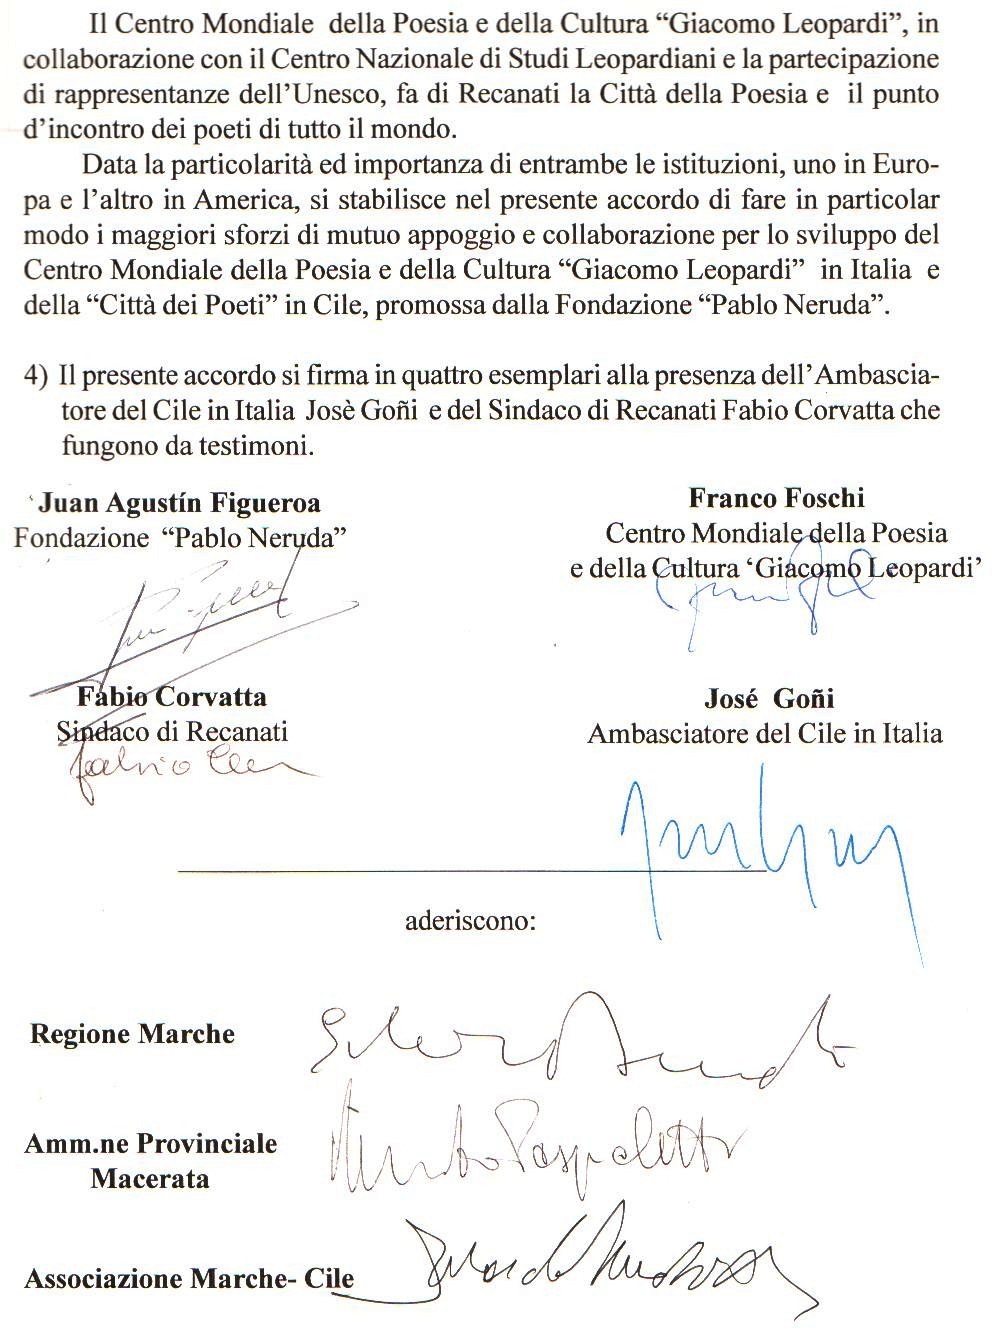 Il Centro Mondiale della Poesia e della Cultura “Giacomo Leopardi”, in
collaborazione con il Centro Nazionale di Studi Leopardiani e la partecipazione
di rappresentanze dell’Unesco, fa di Recanati la Città della Poesia e il punto
d’incontro dei poeti di tutto il mondo.
Data la particolarità ed importanza di entrambe le istituzioni, uno in Euro-
pa e l’altro in America, si stabilisce nel presente accordo di fare in particolar
modo i maggiori sforzi di mutuo appoggio e collaborazione per lo sviluppo del
Centro Mondiale della Poesia e della Cultura “Giacomo Leopardi” in Italia e
della “Città dei Poeti” in Cile, promossa dalla Fondazione “Pablo Neruda”.
4) Il presente accordo si firma in quattro esemplari alla presenza dell’Ambascia-
tore del Cile in Italia Josè Goñi e del Sindaco di Recanati Fabio Corvatta che
fungono da testimoni.
Juan Agustín Figueroa
Fondazione “Pablo Neruda”
Franco Foschi
Centro Mondiale della Poesia
e della Cultura ‘Giacomo Leopardi’
Fabio Corvatta
Sindaco di Recanati
José Goñi
Ambasciatore del Cile in Italia
aderiscono:
Regione Marche
Amm.ne Provinciale
Macerata
Associazione Marche- Cile